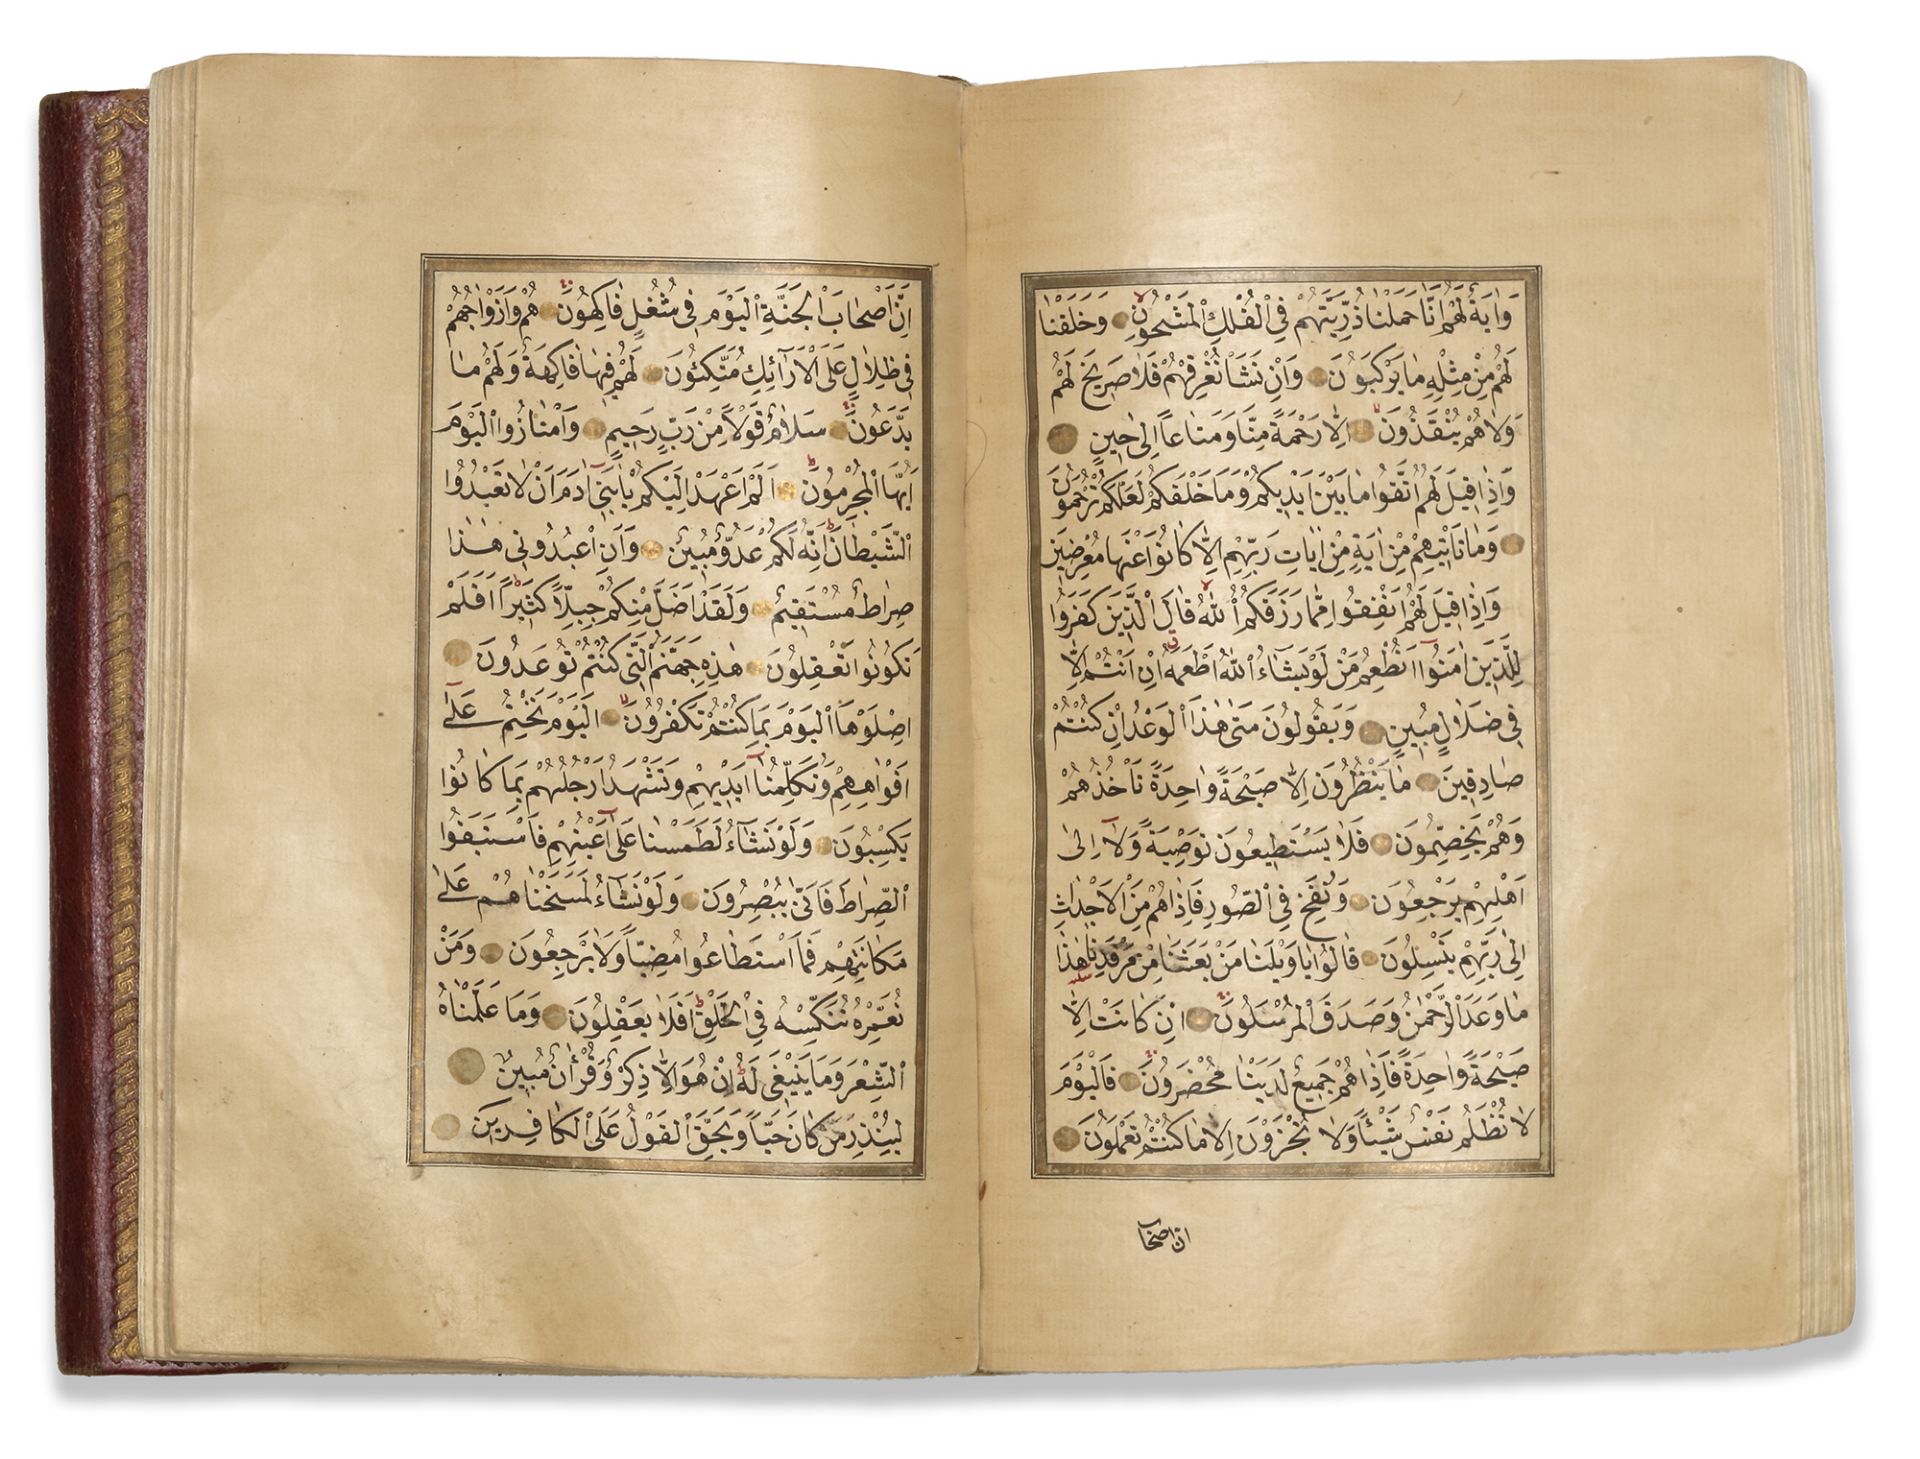 وَاٰيَةٌ لَهُمْ اَنَّا حَمَلْنَا ذُرِّيَّتَهُمْ فِي الْفُلْكِ الْمَشْحُونِ وَخَلَقْنَا
لَهُمْ مِنْ مِثْلِهِ مَا يَرْكَبُونَ وَاِنْ نَشَأْ نُغْرِقْهُمْ فَلَا صَرِيخَ لَهُمْ
وَلَا هُمْ يُنْقَذُونَ اِلَّا رَحْمَةً مِنَّا وَمَتَاعًا اِلٰى حِينٍ
وَاِذَا قِيلَ لَهُمُ اتَّقُوا مَا بَيْنَ اَيْدِيكُمْ وَمَا خَلْفَكُمْ لَعَلَّكُمْ تُرْحَمُونَ
وَمَا تَأْتِيهِمْ مِنْ اٰيَةٍ مِنْ اٰيَاتِ رَبِّهِمْ اِلَّا كَانُوا عَنْهَا مُعْرِضِينَ
وَاِذَا قِيلَ لَهُمْ اَنْفِقُوا مِمَّا رَزَقَكُمُ اللّٰهُ قَالَ الَّذِينَ كَفَرُوا
لِلَّذِينَ اٰمَنُوا اَنُطْعِمُ مَنْ لَوْ يَشَاءُ اللّٰهُ اَطْعَمَهُ اِنْ اَنْتُمْ اِلَّا
فِي ضَلَالٍ مُبِينٍ وَيَقُولُونَ مَتٰى هٰذَا الْوَعْدُ اِنْ كُنْتُمْ
صَادِقِينَ مَا يَنْظُرُونَ اِلَّا صَيْحَةً وَاحِدَةً تَأْخُذُهُمْ
وَهُمْ يَخِصِّمُونَ فَلَا يَسْتَطِيعُونَ تَوْصِيَةً وَلَا اِلٰى
اَهْلِهِمْ يَرْجِعُونَ وَنُفِخَ فِي الصُّورِ فَاِذَا هُمْ مِنَ الْاَجْدَاثِ
اِلٰى رَبِّهِمْ يَنْسِلُونَ قَالُوا يَا وَيْلَنَا مَنْ بَعَثَنَا مِنْ مَرْقَدِنَا هٰذَا
مَا وَعَدَ الرَّحْمٰنُ وَصَدَقَ الْمُرْسَلُونَ اِنْ كَانَتْ اِلَّا
صَيْحَةً وَاحِدَةً فَاِذَا هُمْ جَمِيعٌ لَدَيْنَا مُحْضَرُونَ فَالْيَوْمَ
لَا تُظْلَمُ نَفْسٌ شَيْئًا وَلَا تُجْزَوْنَ اِلَّا مَا كُنْتُمْ تَعْمَلُونَ
ان اصحاب
اِنَّ اَصْحَابَ الْجَنَّةِ الْيَوْمَ فِي شُغُلٍ فَاكِهُونَ هُمْ وَاَزْوَاجُهُمْ
فِي ظِلَالٍ عَلَى الْاَرَائِكِ مُتَّكِئُونَ لَهُمْ فِيهَا فَاكِهَةٌ وَلَهُمْ مَا
يَدَّعُونَ سَلَامٌ قَوْلًا مِنْ رَبٍّ رَحِيمٍ وَامْتَازُوا الْيَوْمَ
اَيُّهَا الْمُجْرِمُونَ اَلَمْ اَعْهَدْ اِلَيْكُمْ يَا بَنِي اٰدَمَ اَنْ لَا تَعْبُدُوا
الشَّيْطَانَ اِنَّهُ لَكُمْ عَدُوٌّ مُبِينٌ وَاَنِ اعْبُدُونِي هٰذَا
صِرَاطٌ مُسْتَقِيمٌ وَلَقَدْ اَضَلَّ مِنْكُمْ جِبِلًّا كَثِيرًا اَفَلَمْ
تَكُونُوا تَعْقِلُونَ هٰذِهِ جَهَنَّمُ الَّتِي كُنْتُمْ تُوعَدُونَ
اِصْلَوْهَا الْيَوْمَ بِمَا كُنْتُمْ تَكْفُرُونَ اَلْيَوْمَ نَخْتِمُ عَلٰى
اَفْوَاهِهِمْ وَتُكَلِّمُنَا اَيْدِيهِمْ وَتَشْهَدُ اَرْجُلُهُمْ بِمَا كَانُوا
يَكْسِبُونَ وَلَوْ نَشَاءُ لَطَمَسْنَا عَلٰى اَعْيُنِهِمْ فَاسْتَبَقُوا
الصِّرَاطَ فَاَنّٰى يُبْصِرُونَ وَلَوْ نَشَاءُ لَمَسَخْنَاهُمْ عَلٰى
مَكَانَتِهِمْ فَمَا اسْتَطَاعُوا مُضِيًّا وَلَا يَرْجِعُونَ وَمَنْ
نُعَمِّرْهُ نُنَكِّسْهُ فِي الْخَلْقِ اَفَلَا يَعْقِلُونَ وَمَا عَلَّمْنَاهُ
الشِّعْرَ وَمَا يَنْبَغِي لَهُ اِنْ هُوَ اِلَّا ذِكْرٌ وَقُرْاٰنٌ مُبِينٌ
لِيُنْذِرَ مَنْ كَانَ حَيًّا وَيَحِقَّ الْقَوْلُ عَلَى الْكَافِرِينَ